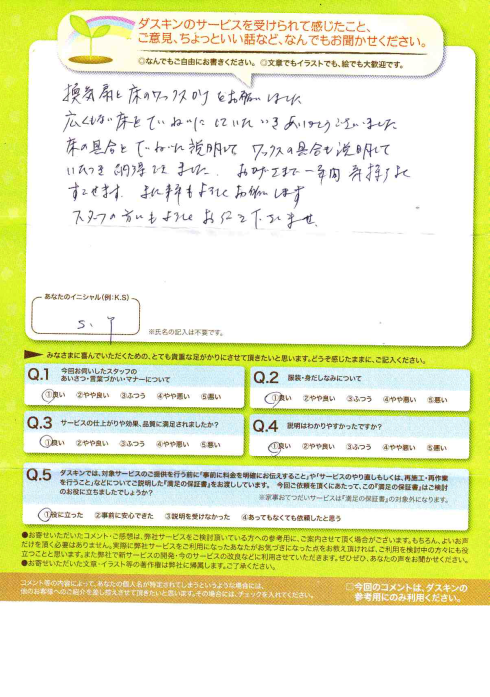 ダスキンのサービスを受けられて感じたこと、
ご意見、ちょっといい話など、なんでもお聞かせください。
◎なんでもご自由にお書きください。 ◎文章でもイラストでも、絵でも大歓迎です。
換気扇と床のワックスがけをお願いしました
広くもない床をていねいにしていただきありがとうございました
床の具合とていねいに説明して ワックスの具合も説明して
いただき納得できました。 おかげさまで一年間 気持ちよく
すごせます。 また来年もよろしくお願いします
スタッフの方にもよろしくお伝え下さいませ。
あなたのイニシャル(例:K.S)
S. Y
※氏名の記入は不要です。
みなさまに喜んでいただくための、とても貴重な足がかりにさせて頂きたいと思います。どうぞ感じたままに、ご記入ください。
Q.1 今回お伺いしたスタッフの
あいさつ・言葉づかい・マナーについて
①良い ②やや良い ③ふつう ④やや悪い ⑤悪い
Q.2 服装・身だしなみについて
①良い ②やや良い ③ふつう ④やや悪い ⑤悪い
Q.3 サービスの仕上がりや効果、品質に満足されましたか?
①良い ②やや良い ③ふつう ④やや悪い ⑤悪い
Q.4 説明はわかりやすかったですか?
①良い ②やや良い ③ふつう ④やや悪い ⑤悪い
Q.5 ダスキンでは、対象サービスのご提供を行う前に「事前に料金を明確にお伝えすること」や「サービスのやり直しもしくは、再施工・再作業
を行うこと」などについてご説明した「満足の保証書」をお渡ししています。 今回ご依頼を頂くにあたって、この「満足の保証書」はご検討
のお役に立ちましたでしょうか?
※家事おてつだいサービスは「満足の保証書」の対象外になります。
①役に立った ②事前に安心できた ③説明を受けなかった ④あってもなくても依頼したと思う
●お寄せいただいたコメント・ご感想は、弊社サービスをご検討頂いている方への参考用に、ご案内させて頂く場合がございます。もちろん、よいお声
だけを頂く必要はありません。実際に弊社サービスをご利用になったあなたがお気づきになった点をお教え頂ければ、ご利用を検討中の方々にも役
立つことと思います。また弊社で新サービスの開発・今のサービスの改良などに利用させていただきます。ぜひぜひ、あなたの声をお聞かせください。
●お寄せいただいた文章・イラスト等の著作権は弊社に帰属します。ご了承ください。
コメント等の内容によって、あなたの個人名が特定されてしまうというような場合には、
他のお客様へのご紹介を差し控えさせて頂きたいと思います。その場合には、チェックを入れてください。
□今回のコメントは、ダスキンの
参考用にのみ利用ください。